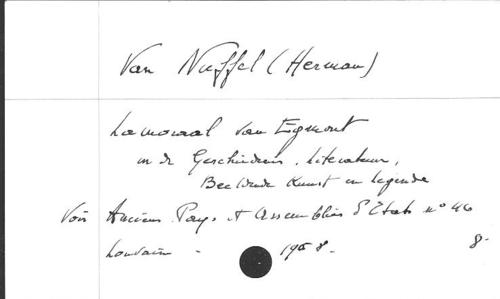 Van Nuffel (Herman)
Lamoraal van Egmont
in de Geschiedenis, Literatuur,
Beeldende Kunst en legende
Voir Anciens Pays et Assemblées d'Etats n° 46
Louvain - 1968.
8.